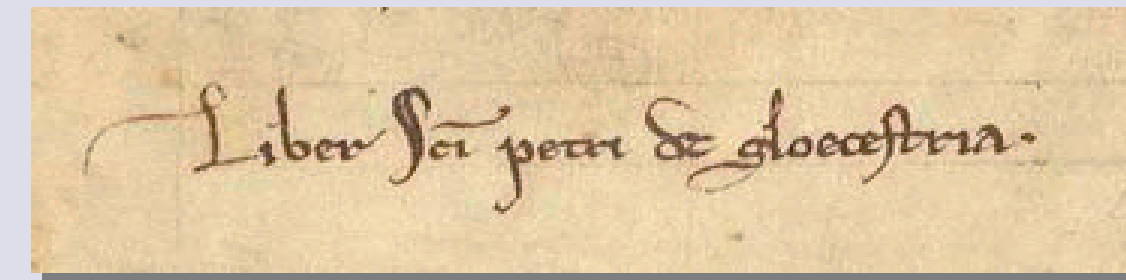 Liber Sci petri de gloecestria.